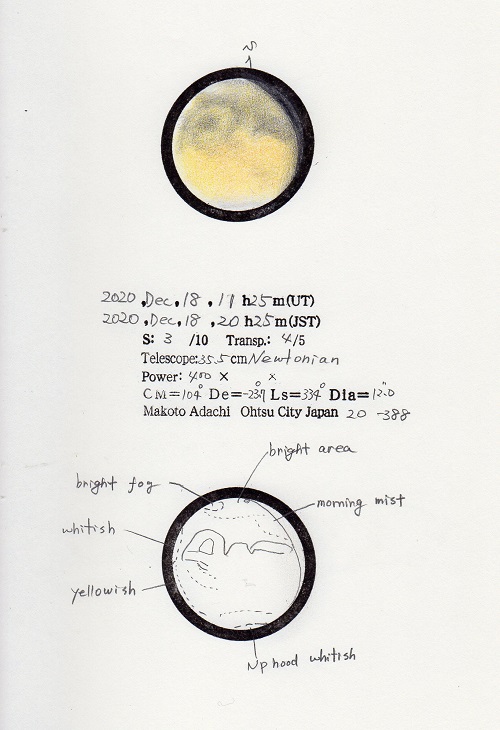 S
2020 ,Dec, 18 , 11 h25m(UT)
2020 ,Dec, 18 , 20 h25m(JST)
S: 3 /10 Transp.: 4/5
Telescope:35.5cm Newtonian
Power: 400 × ×
CM=104° De=-23.1° Ls=334° Dia=12.″0
Makoto Adachi Ohtsu City Japan 20 -388
bright area
bright fog
morning mist
whitish
yellowish
Np hood whitish